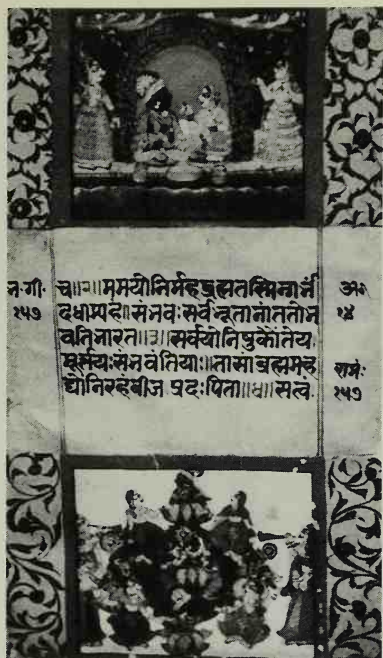 भ·गी·
१५७
च॥२॥ममयोनिर्महद्ब्रह्मतस्मिन्गर्भं
दधाम्यहं॥संभवः सर्वभूतानांततोभ
वतिभारत॥३॥सर्वयोनिषुकौंतेय
मूर्त्तयःसंभवंतियाः॥तासांब्रह्ममह
द्योनिरहंबीज प्रदःपिता॥४॥सत्वं
अ·
१४
रामः
१५७